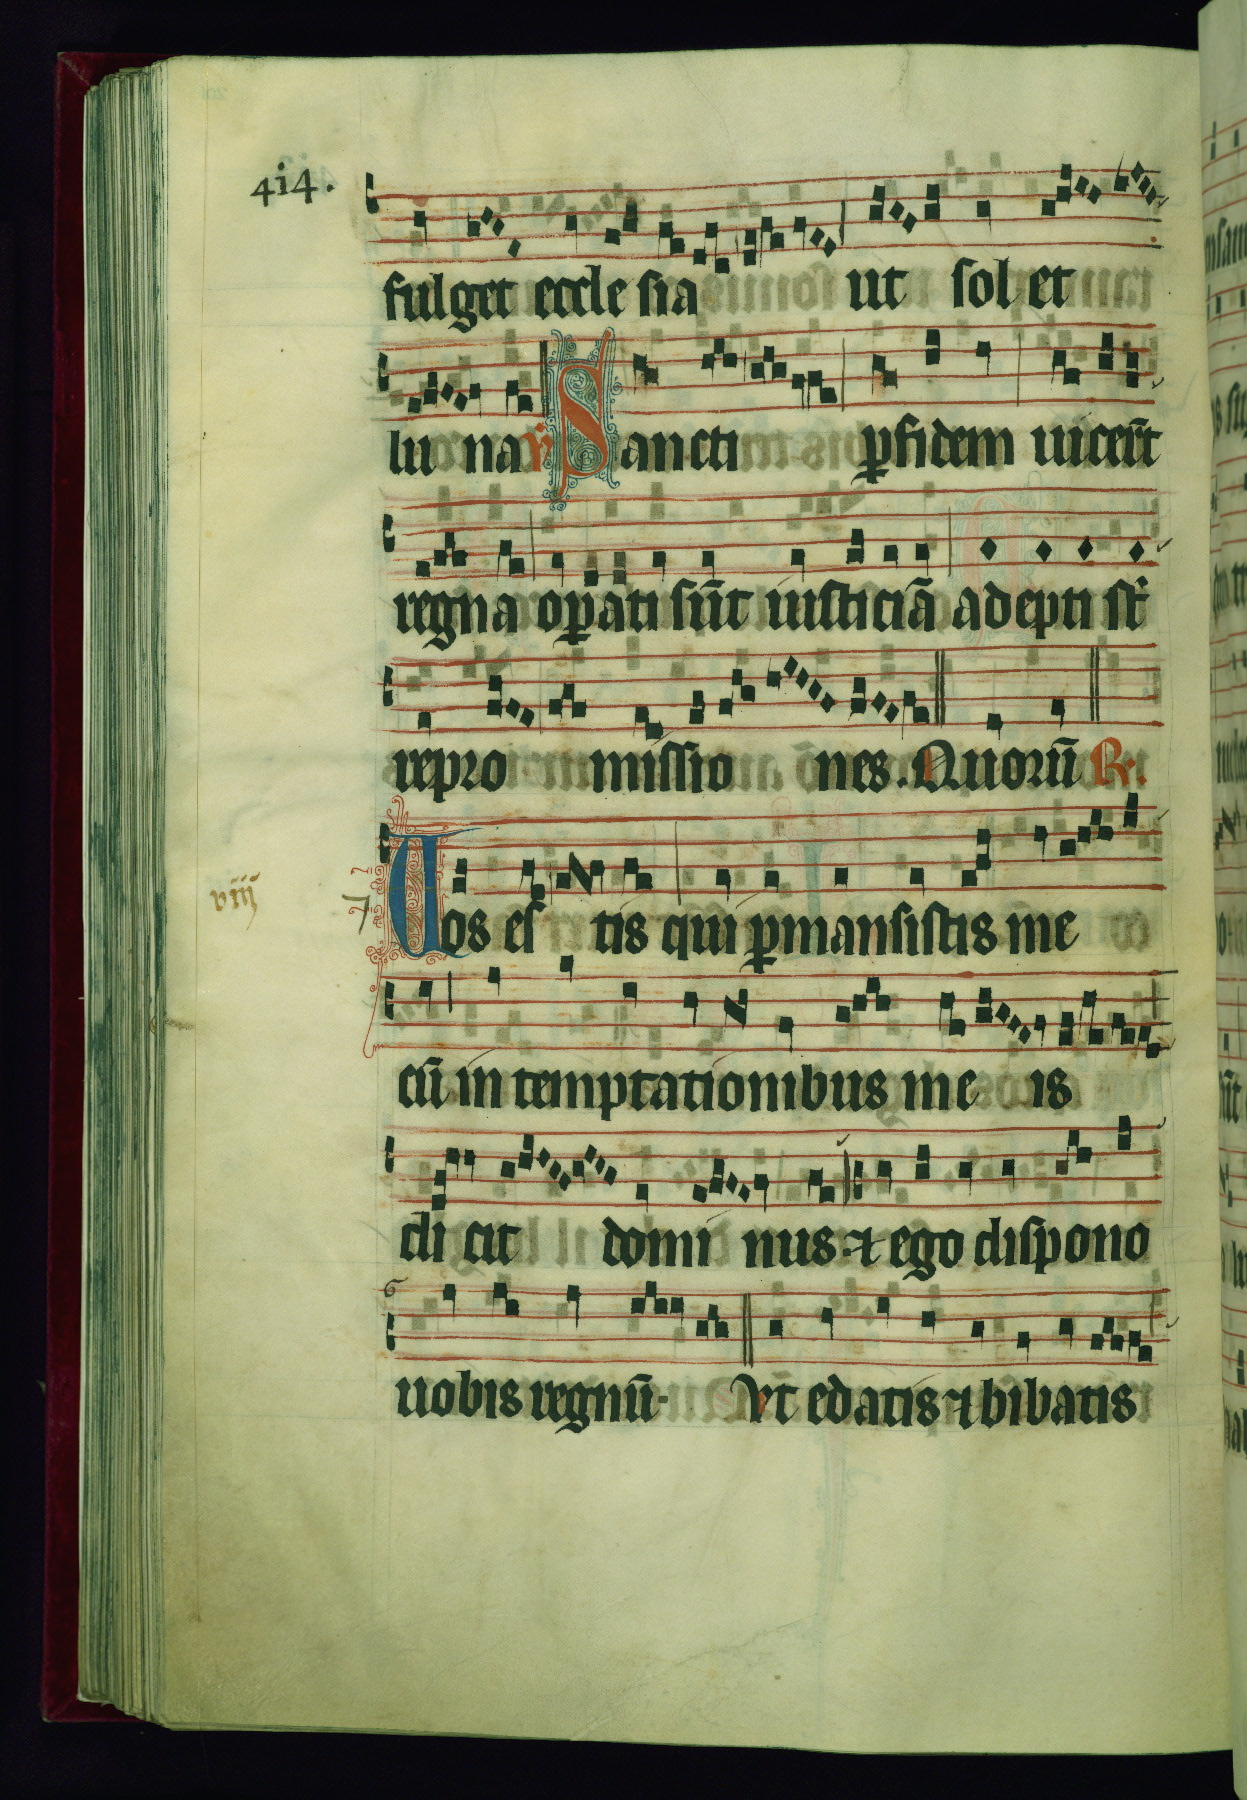 4i4.
fulget eccle sia ut sol et
lu na ℣ Sancti ꝑ fidem uicer̄t
regna oꝑati sūt iusticiā adepti st̄
repro missio nes. Quorū ℟.
viij
7
Uos es tis qui ꝑmansistis me
cū in temptationibus me is
di cit domi nus: ⁊ ego dispono
uobis regnū. Vt edatis ⁊ bibatis